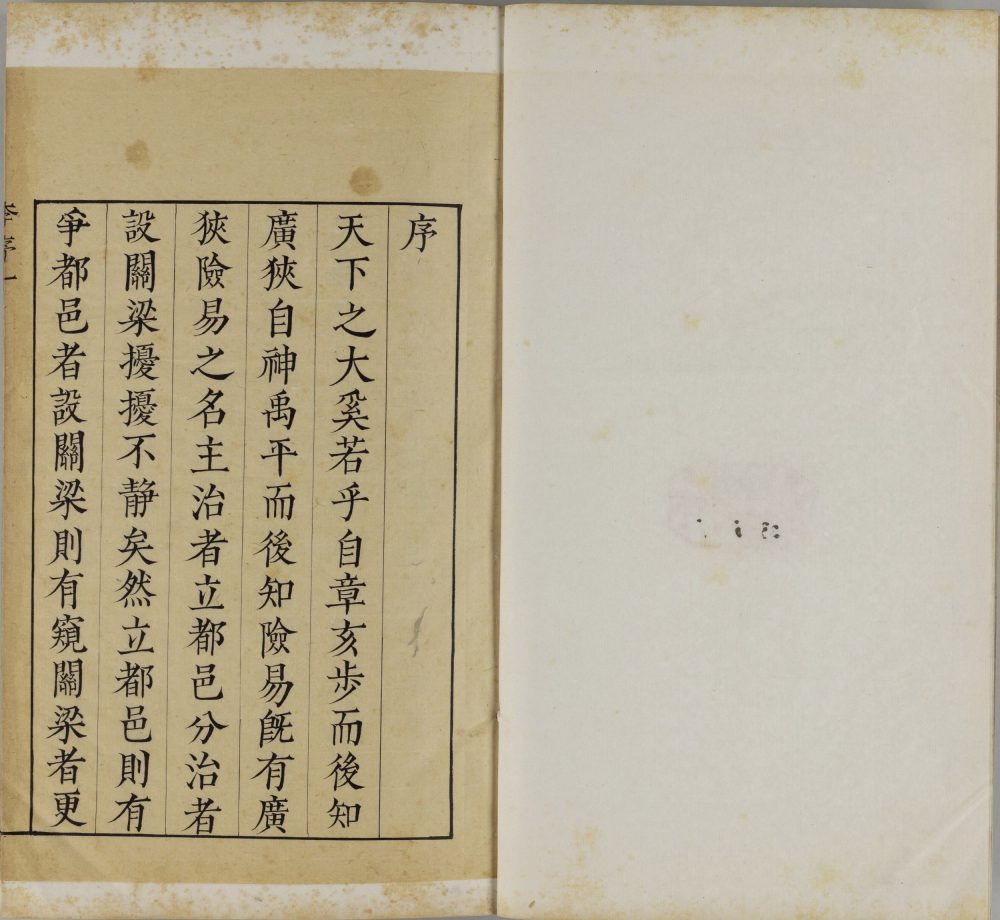 序
天下之大奚若乎自章亥步而後知
廣狹自神禹平而後知險易旣有廣
狹險易之名主治者立都邑分治者
設關梁擾擾不静矣然立都邑則有
爭都邑者設關梁則有窺關梁者更